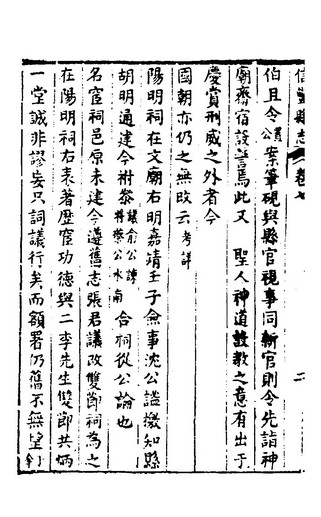 信豐縣志 卷七
伯且令公案筆硯與縣官視事同新官則令先詣神
廟齋宿設誓焉此又 聖人神道設教之意有出于
慶賞刑威之外者今
國朝亦仍之無改云考詳
陽明祠在文廟右明嘉靖壬子僉事沈公謐檄知縣
胡明通建今祔叅議俞公諫并蔡公水南合祠從公論也
名宦祠邑原未建今遵舊志張君議改雙節祠為之
在陽明祠右表著歷宦功德與二李先生雙節共炳
一堂誠非謬妄只詞議行矣而額署仍舊不無望